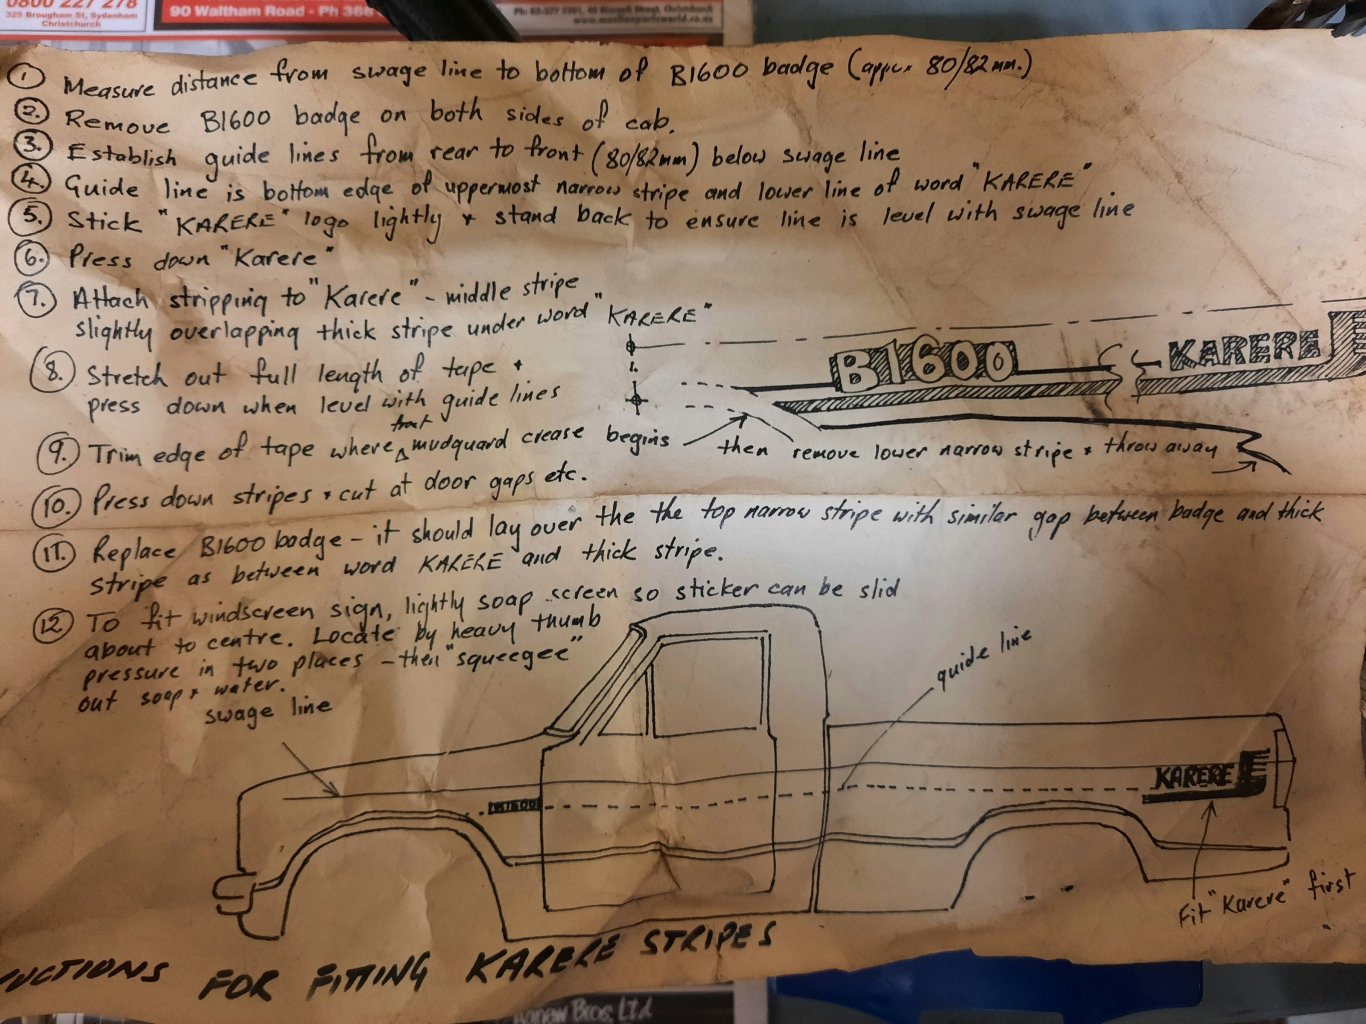 0800 227 278
325 Brougham St, Sydenham
Christchurch
90 Waltham Road - Ph 366
① Measure distance from swage line to bottom of B1600 badge (appx 80/82mm.)
②. Remove B1600 badge on both sides of cab.
③. Establish guide lines from rear to front (80/82mm) below swage line
④. Guide line is bottom edge of uppermost narrow stripe and lower line of word "KARERE"
⑤. Stick "KARERE" logo lightly + stand back to ensure line is level with swage line
⑥. Press down "Karere"
⑦. Attach stripping to "Karere" - middle stripe
slightly overlapping thick stripe under word "KARERE"
⑧. Stretch out full length of tape +
press down when level with guide lines
⑨. Trim edge of tape where front mudguard crease begins
then remove lower narrow stripe + throw away
B1600
KARERE
⑩. Press down stripes + cut at door gaps etc.
⑪. Replace B1600 badge - it should lay over the the top narrow stripe with similar gap between badge and thick
stripe as between word KARERE and thick stripe.
⑫. To fit windscreen sign, lightly soap screen so sticker can be slid
about to centre. Locate by heavy thumb
pressure in two places - then "squeegee"
out soap + water.
swage line
guide line
B1600
KARERE
Fit "Karere" first
UCTIONS FOR FITTING KARERE STRIPES
Bros, Ltd